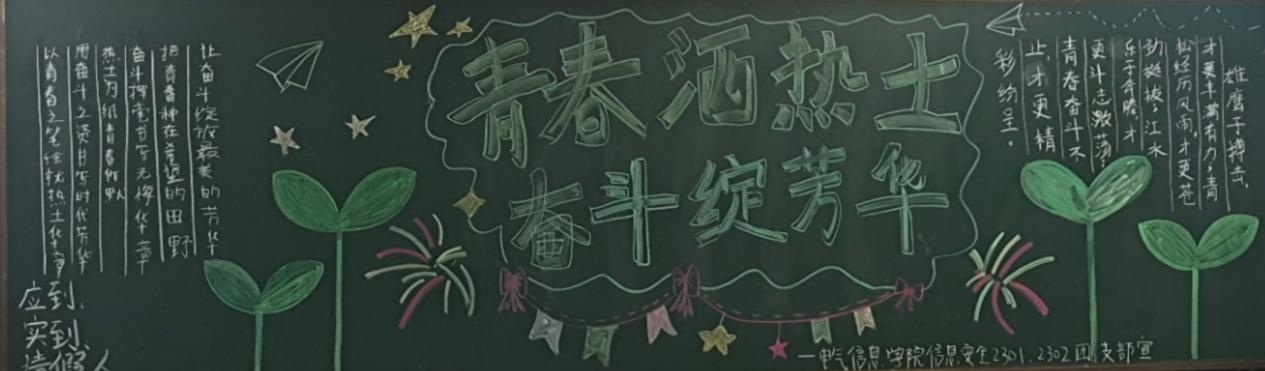 青春洒热土
奋斗绽芳华
让奋斗绽放最美的芳华
把青春种在希望的田野
奋斗挥毫书写无悔华章
热土为纸青春作
用奋斗之
写时代芳华
以青春之笔绘就热土华章
雄鹰于搏击,
才更丰满有力,青
松经历风雨,才更苍
劲挺拔,江水
乐于奔腾,才
更斗志激荡,
青春奋斗不
止,才更精
彩纷呈。
应到
实到
请假 人
—电气信息学院信息安全2301、2302团支部宣